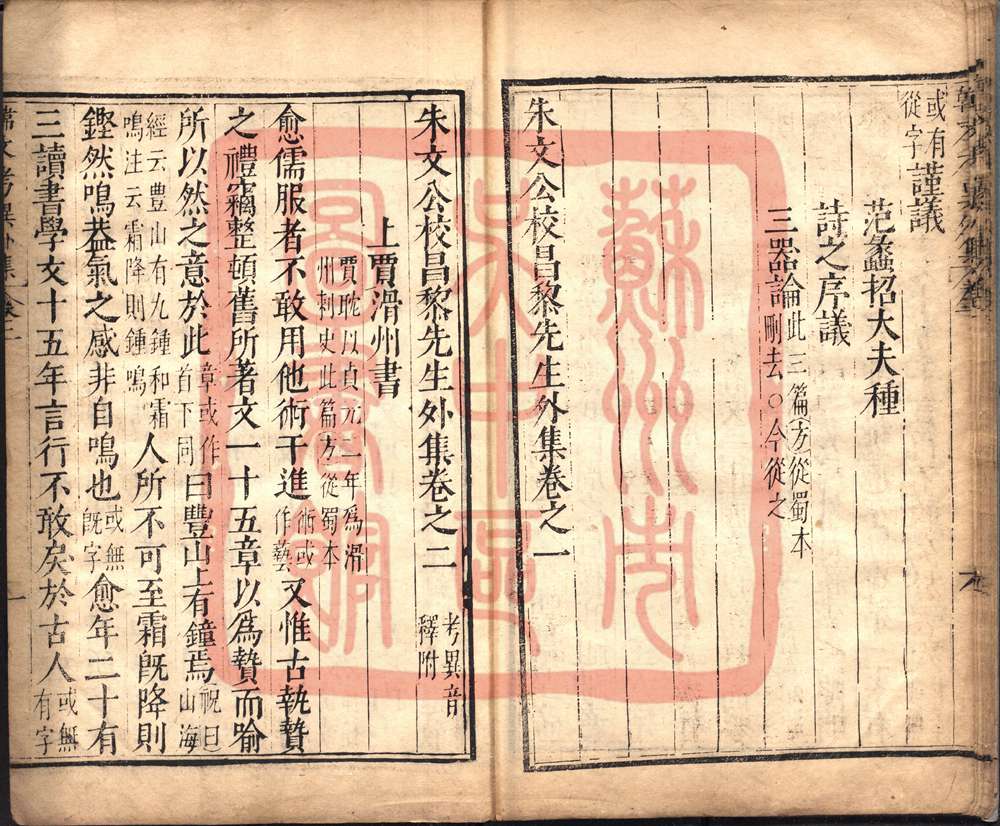 或有從字謹議
范蠡招大夫種
詩之序議
三器論此三篇方從蜀本刪去○今從之
朱文公校昌黎先生外集卷之一
九
朱文公校昌黎先生外集卷之二考異音釋附
上賈滑州書
賈耽以貞元二年為滑州刺史此篇方從蜀本
愈儒服者不敢用他術干進術或作藝又惟古執贄
之禮竊整頓舊所著文一十五章以爲贄而喻
所以然之意於此章或作首下同曰豐山上有鐘焉祝曰山海
經云豊山有九鍾和霜鳴注云霜降則鍾鳴人所不可至霜旣降則
鏗然鳴葢氣之感非自鳴也或無旣字愈年二十有
三讀書學文十五年言行不敢戾於古人或無有字
蘇州市吳中區圖書館